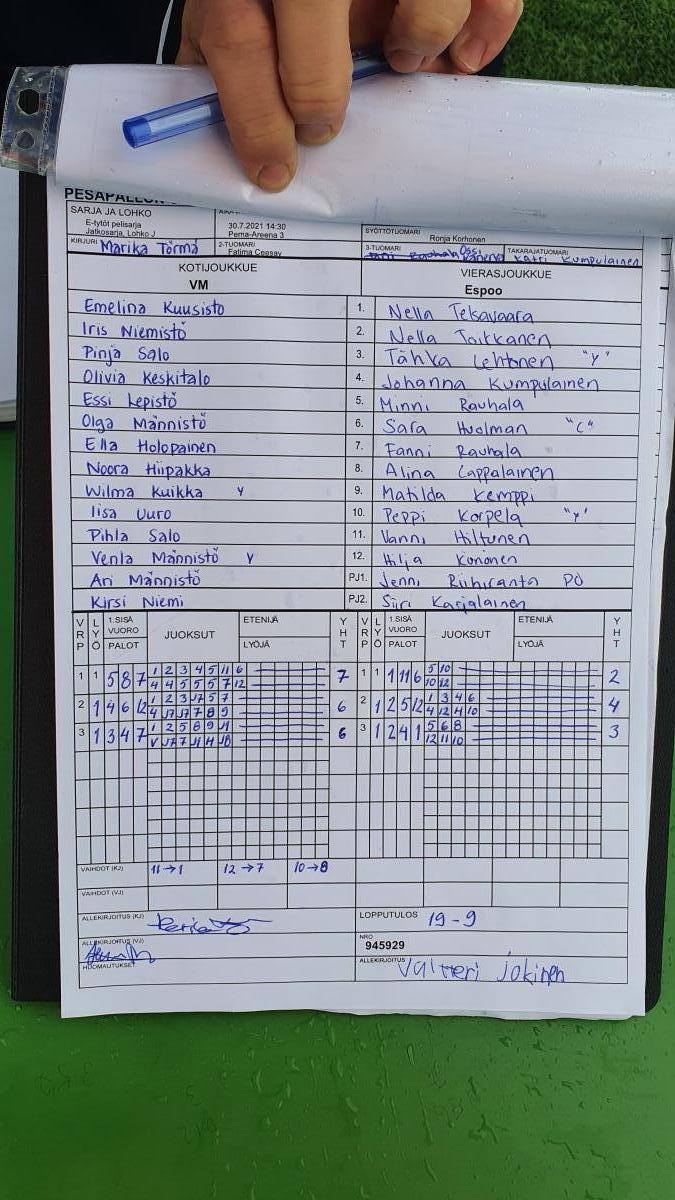 SARJA JA LOHKO
E-tytöt pelisarja
Jatkosarja, Lohko J
30.7.2021 14:30
Pema-Areena 3
SYÖTTÖTUOMARI
Ronja Korhonen
KIRJURI Marika Törmä
2-TUOMARI
Fatima Ceesay
3-TUOMARI
TAKARAJATUOMARI
Katri Kumpulainen
KOTIJOUKKUE VIERASJOUKKUE
VM Espoo
Emelina Kuusisto 1. Nella Telsavaara
Iris Niemistö 2. Nella Toikkanen
Pinja Salo 3. Tähkä Lehtonen "Y"
Olivia Keskitalo 4. Johanna Kumpulainen
Essi Lepistö 5. Minni Rauhala
Olga Männistö 6. Sara Huolman "C"
Ella Holopainen 7. Fanni Rauhala
Noora Hiipakka 8. Alina Lappalainen
Wilma Kuikka Y 9. Matilda Kemppi
Iisa Uuro 10. Peppi Korpela "Y"
Pihla Salo 11. Vanni Hiltunen
Venla Männistö Y 12. Hilja Kononen
Ari Männistö PJ1. Jenni Riihiranta PO
Kirsi Niemi PJ2. Siiri Karjalainen
VRP LYÖ 1.SISÄ VUORO JUOKSUT ETENIJÄ YHT VRP LYÖ 1.SISÄ VUORO JUOKSUT ETENIJÄ YHT
PALOT LYÖJÄ PALOT LYÖJÄ
1 1 5 8 7 1 2 3 4 5 11 6 7 1 1 1 11 6 5 10 2
4 4 5 5 5 7 12 10 12
2 1 4 6 12 6 2 1 2 5 12 1 3 4 6 4
4 12 4 10
3 1 3 4 7 6 3 1 2 4 1 5 6 8 3
12 11 10
VAIHDOT (KJ) 11→1 12→7 10→8
VAIHDOT (VJ)
ALLEKIRJOITUS (KJ)
LOPPUTULOS 19-9
ALLEKIRJOITUS (VJ)
NRO
945929
HUOMAUTUKSET
ALLEKIRJOITUS Valtteri Jokinen